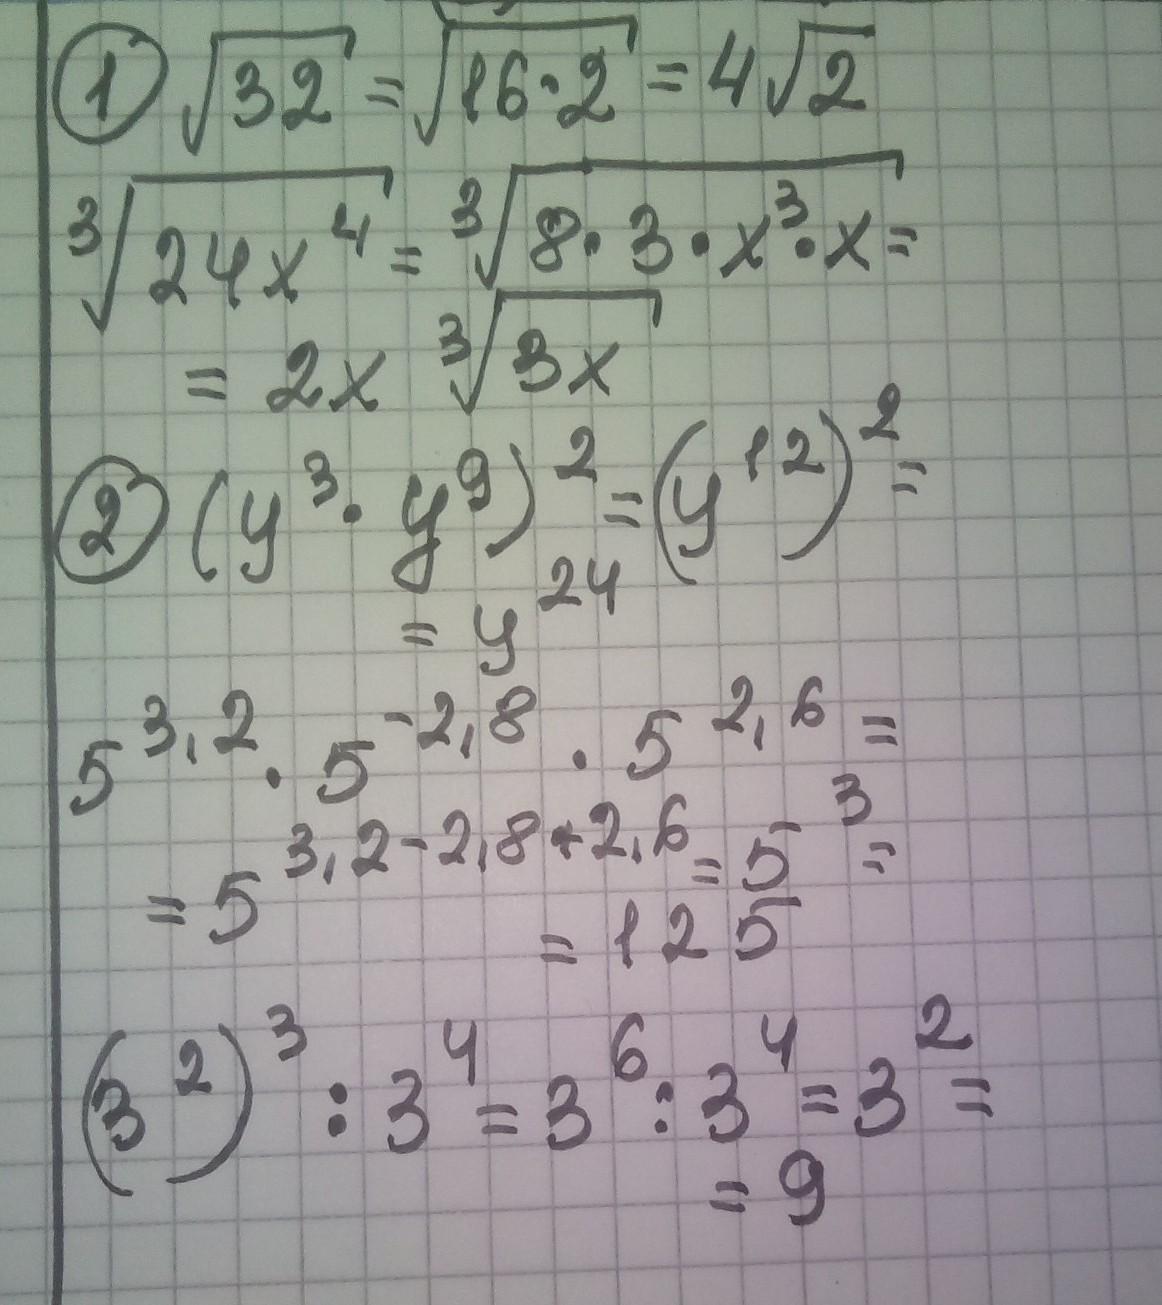 ① √32 = √16·2 = 4√2
³√24x⁴ = ³√8·3·x³·x =
= 2x ³√3x
② (y³·y⁹)² = (y¹²)² =
= y²⁴
5³,² · 5⁻²,⁸ · 5²,⁶ =
= 5³,²⁻²,⁸⁺²,⁶ = 5³ =
= 125
(3²)³ : 3⁴ = 3⁶ : 3⁴ = 3² =
= 9